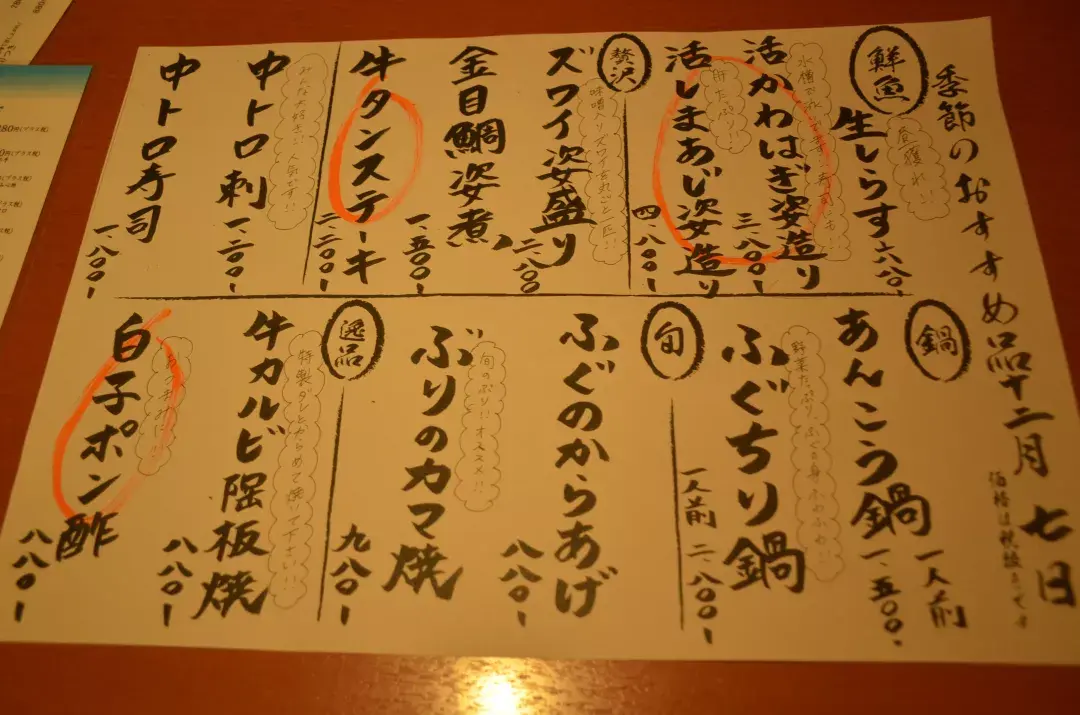 季節のおすすめ品 十二月七日
価格は税抜きです
鮮魚
昼獲れ!!
生しらす 六八〇-
活かわはぎ姿造り 三、八〇〇-
肝たっぷり!!
活しまあじ姿造り 四、八〇〇-
贅沢
味噌入りズワイ含丸ごと一匹!!
ズワイ姿盛り 二、八〇〇
金目鯛姿煮 一、五〇〇-
牛タンステーキ 二、二〇〇-
みんな大好き!!人気です!!
中トロ刺 一、二〇〇-
中トロ寿司 一、八〇〇-
鍋
あんこう鍋 一人前 一、五〇〇-
野菜たっぷり、ふぐの身ふわふわ!!
ふぐちり鍋 一人前 二、八〇〇-
旬
ふぐのからあげ 八八〇-
旬のぶり!!オススメ!!
ぶりのカマ焼 九八〇-
逸品
特製ダレとからめて焼いて下さい!!
牛カルビ陶板焼 八八〇-
白子ポン酢 八八〇-